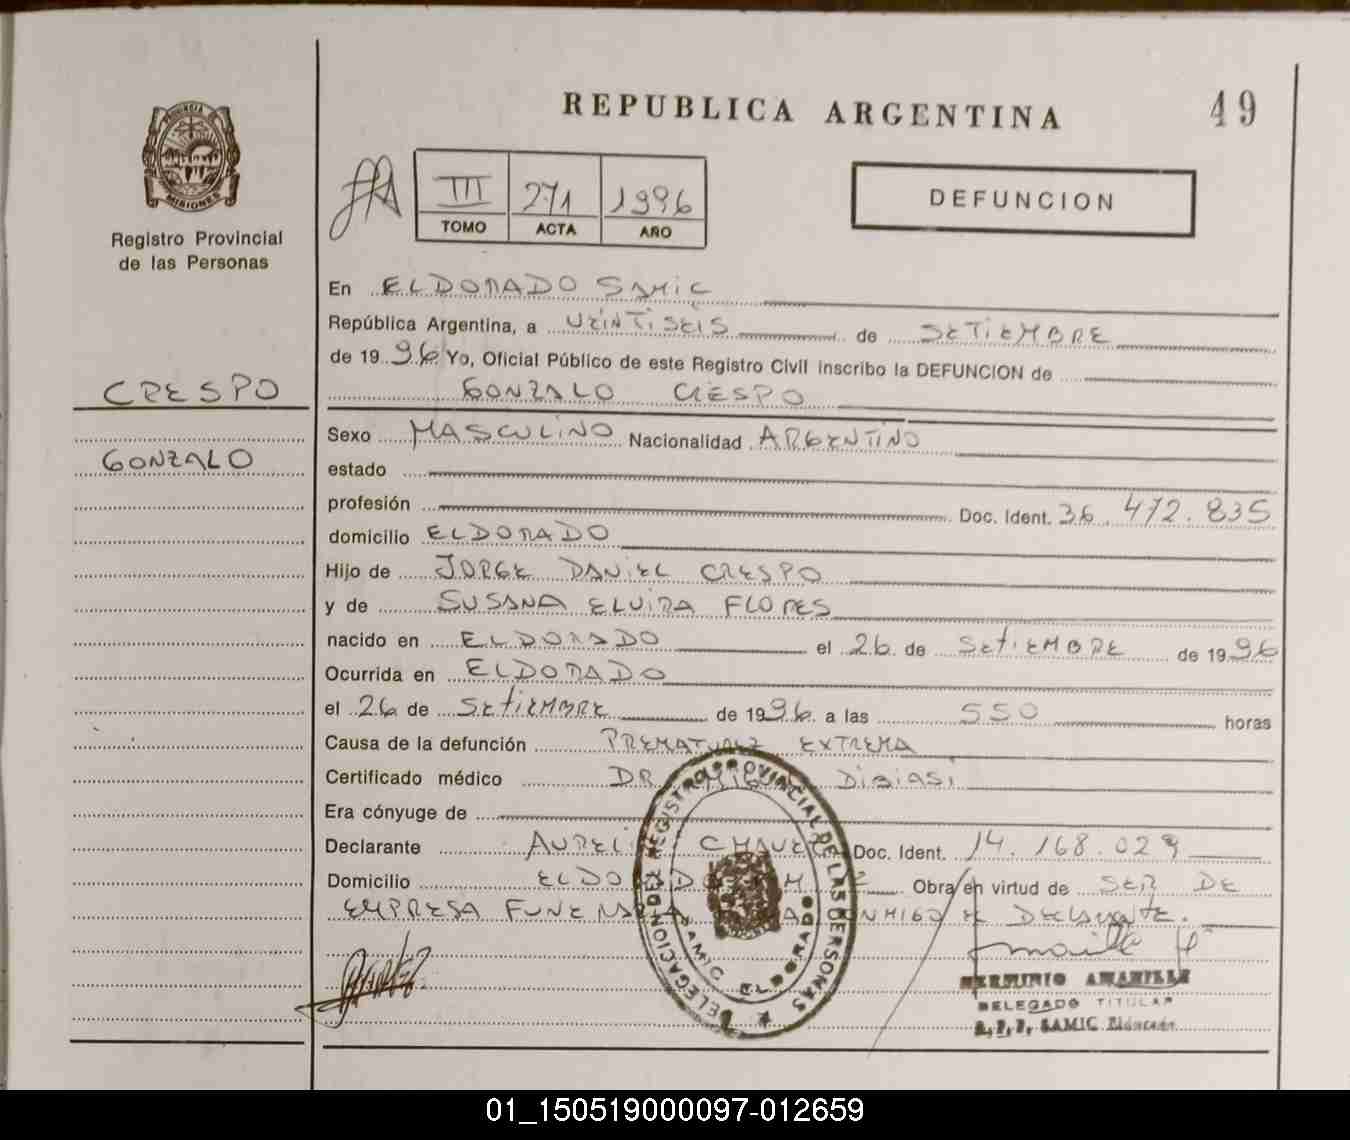 REPUBLICA ARGENTINA
49
PROVINCIA
MISIONES
Registro Provincial
de las Personas
III 271 1996
TOMO ACTA AÑO
DEFUNCION
En ELDORADO SAMIC
República Argentina, a VEINTISEIS de SETIEMBRE
de 1996 Yo, Oficial Público de este Registro Civil inscribo la DEFUNCION de
CRESPO
GONZALO CRESPO
Sexo MASCULINO Nacionalidad ARGENTINO
GONZALO
estado
profesión Doc. Ident. 36.472.835
domicilio ELDORADO
Hijo de JORGE DANIEL CRESPO
y de SUSANA ELVIRA FLORES
nacido en ELDORADO el 26 de SETIEMBRE de 1996
Ocurrida en ELDORADO
el 26 de SETIEMBRE de 1996 a las 550 horas
Causa de la defunción PREMATUREZ EXTREMA
Certificado médico DR. DIBIASI
Era cónyuge de
Declarante Doc. Ident. 14.168.029
Domicilio ELDORADO Obra en virtud de SER DE
EMPRESA FUNERARIA CONMIGO EL DECLARANTE.
DELEGACION DEL REGISTRO PROVINCIAL DE LAS PERSONAS
SAMIC ELDORADO
HERMINIO AMARILLA
DELEGADO TITULAR
R.P.P. SAMIC Eldorado
01_150519000097-012659